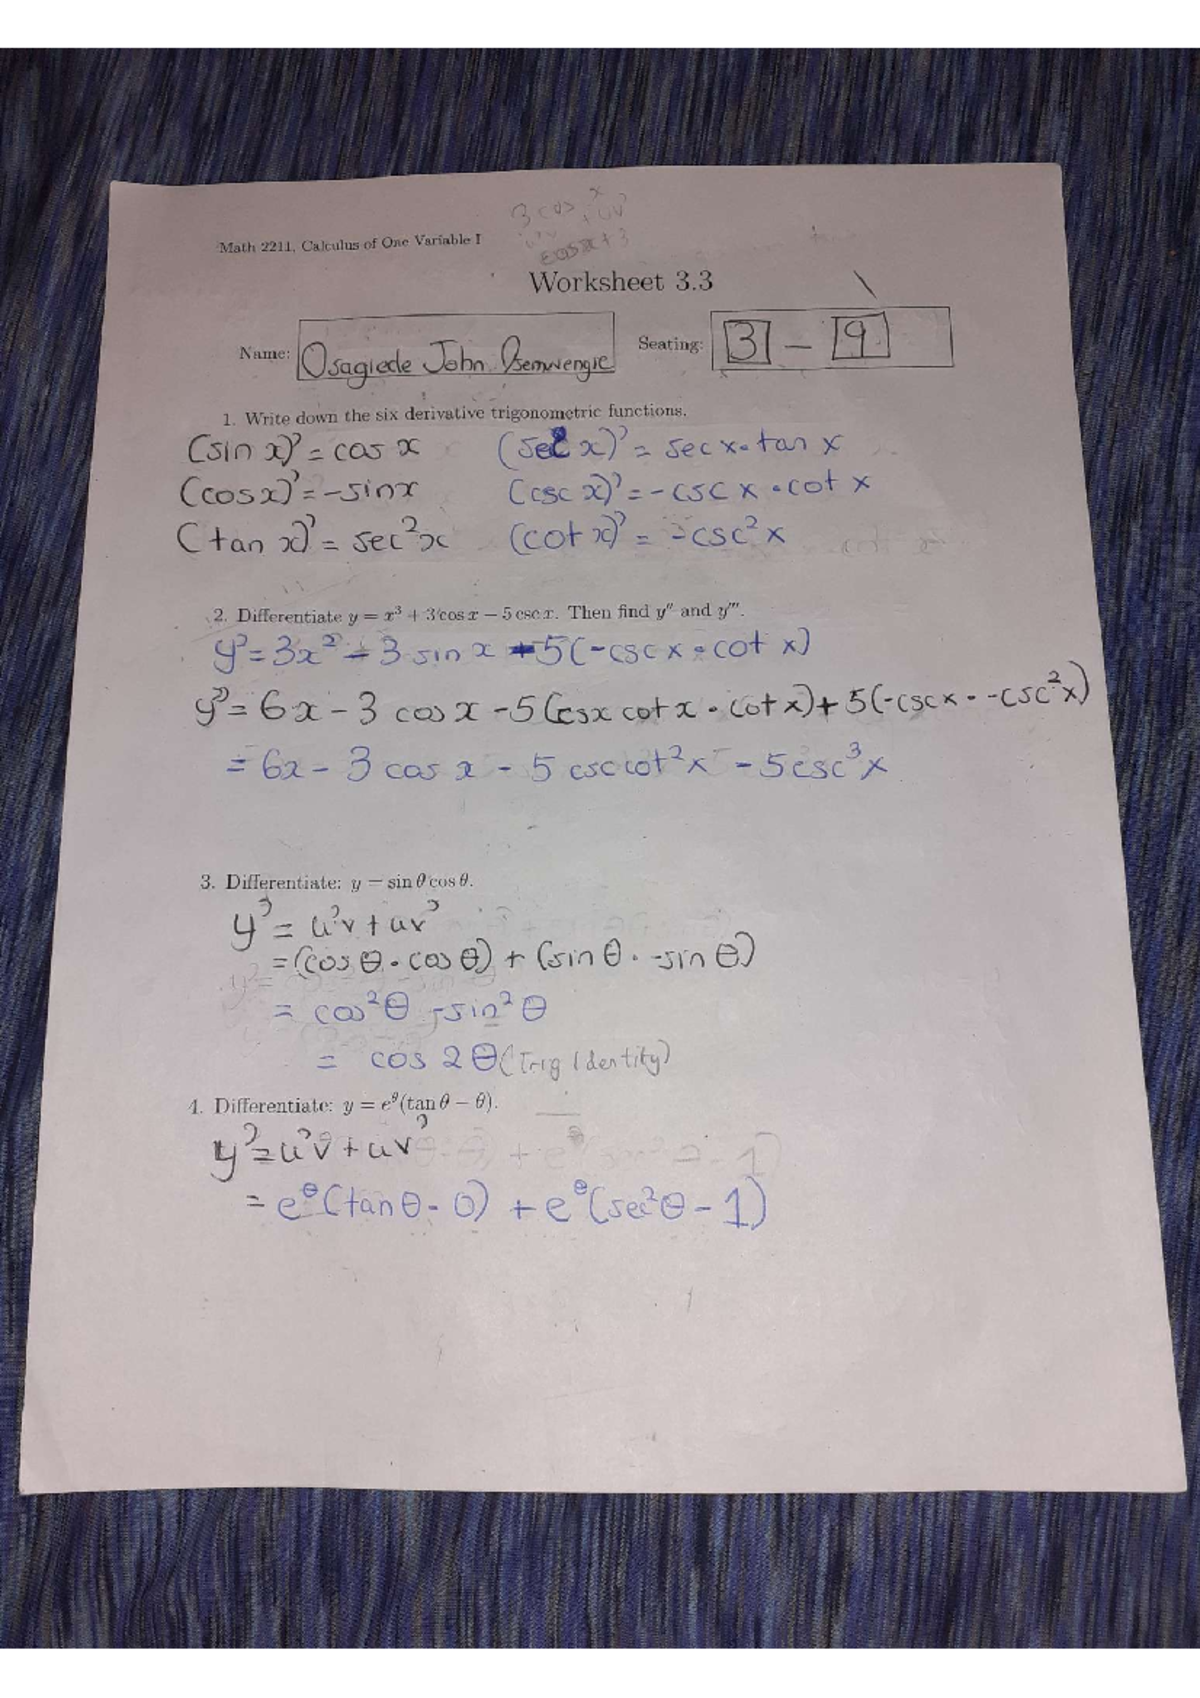 3 cos x
Math 2211, Calculus of One Variable I
cosx + 3
Worksheet 3.3
Name: Osagiede John Osemwengie Seating: 3 - 9
1. Write down the six derivative trigonometric functions.
(sin x)' = cos x (sec x)' = sec x · tan x
(cos x)' = -sin x (csc x)' = -csc x · cot x
(tan x)' = sec²x (cot x)' = -csc² x
2. Differentiate y = x³ + 3 cos x − 5 csc x. Then find y″ and y‴.
y' = 3x² - 3 sin x - 5(-csc x · cot x)
y'' = 6x - 3 cos x - 5(csx cot x · cot x) + 5(-csc x · -csc² x)
= 6x - 3 cos x - 5 csc cot² x - 5 csc³ x
3. Differentiate: y = sin θ cos θ.
y' = u'v + uv'
= (cos θ · cos θ) + (sin θ · -sin θ)
= cos² θ - sin² θ
= cos 2 θ (Trig Identity)
4. Differentiate: y = e^θ(tan θ − θ).
y' = u'v + uv'
= e^θ (tan θ - θ) + e^θ (sec² θ - 1)